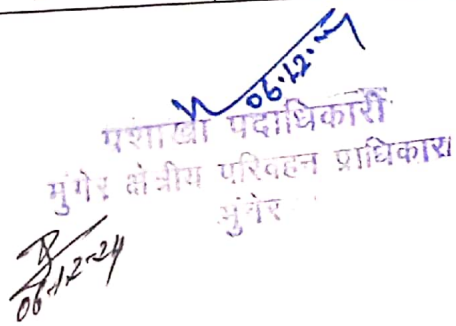 06.12.24
प्रशाखा पदाधिकारी
मुंगेर क्षेत्रीय परिवहन प्राधिकार।
मुंगेर
06.12-24